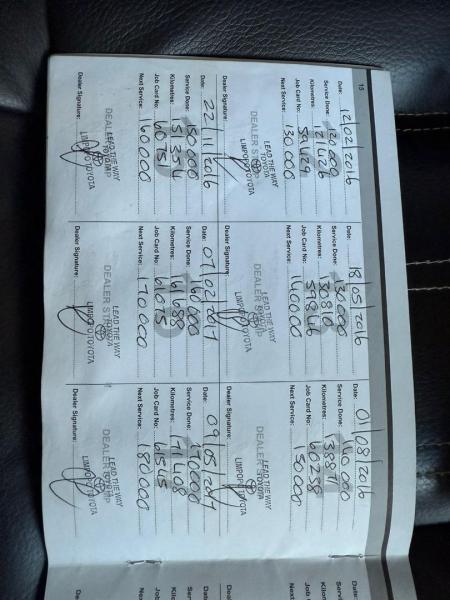 15
Date: 12/02/2016
Service Done: 120 000
Kilometres: 121026
Job Card No: 59129
Next Service: 130 000
LEAD THE WAY
TOYOTA
DEALER STAMP
LIMPOPO TOYOTA
Dealer Signature:
Date: 18/05/2016
Service Done: 130 000
Kilometres: 130810
Job Card No: 59846
Next Service: 140 000
LEAD THE WAY
TOYOTA
DEALER STAMP
LIMPOPO TOYOTA
Dealer Signature:
Date: 01/08/2016
Service Done: 140 000
Kilometres:
Job Card No: 60258
Next Service: 150 000
LEAD THE WAY
TOYOTA
DEALER STAMP
LIMPOPO TOYOTA
Dealer Signature:
Date: 22/11/2016
Service Done: 150 000
Kilometres: 151354
Job Card No: 60751
Next Service: 160 000
LEAD THE WAY
TOYOTA
DEALER STAMP
LIMPOPO TOYOTA
Dealer Signature:
Date: 07/02/2017
Service Done: 160 000
Kilometres: 161688
Job Card No: 61075
Next Service: 170 000
LEAD THE WAY
TOYOTA
DEALER STAMP
LIMPOPO TOYOTA
Dealer Signature:
Date: 09/05/2017
Service Done: 170000
Kilometres: 171408
Job Card No: 61515
Next Service: 180 000
LEAD THE WAY
TOYOTA
DEALER STAMP
LIMPOPO TOYOTA
Dealer Signature:
Date:
Service Do
Kilometres
Job Card
Next Ser
Dealer
Date:
Servic
Kilom
Job
Nex